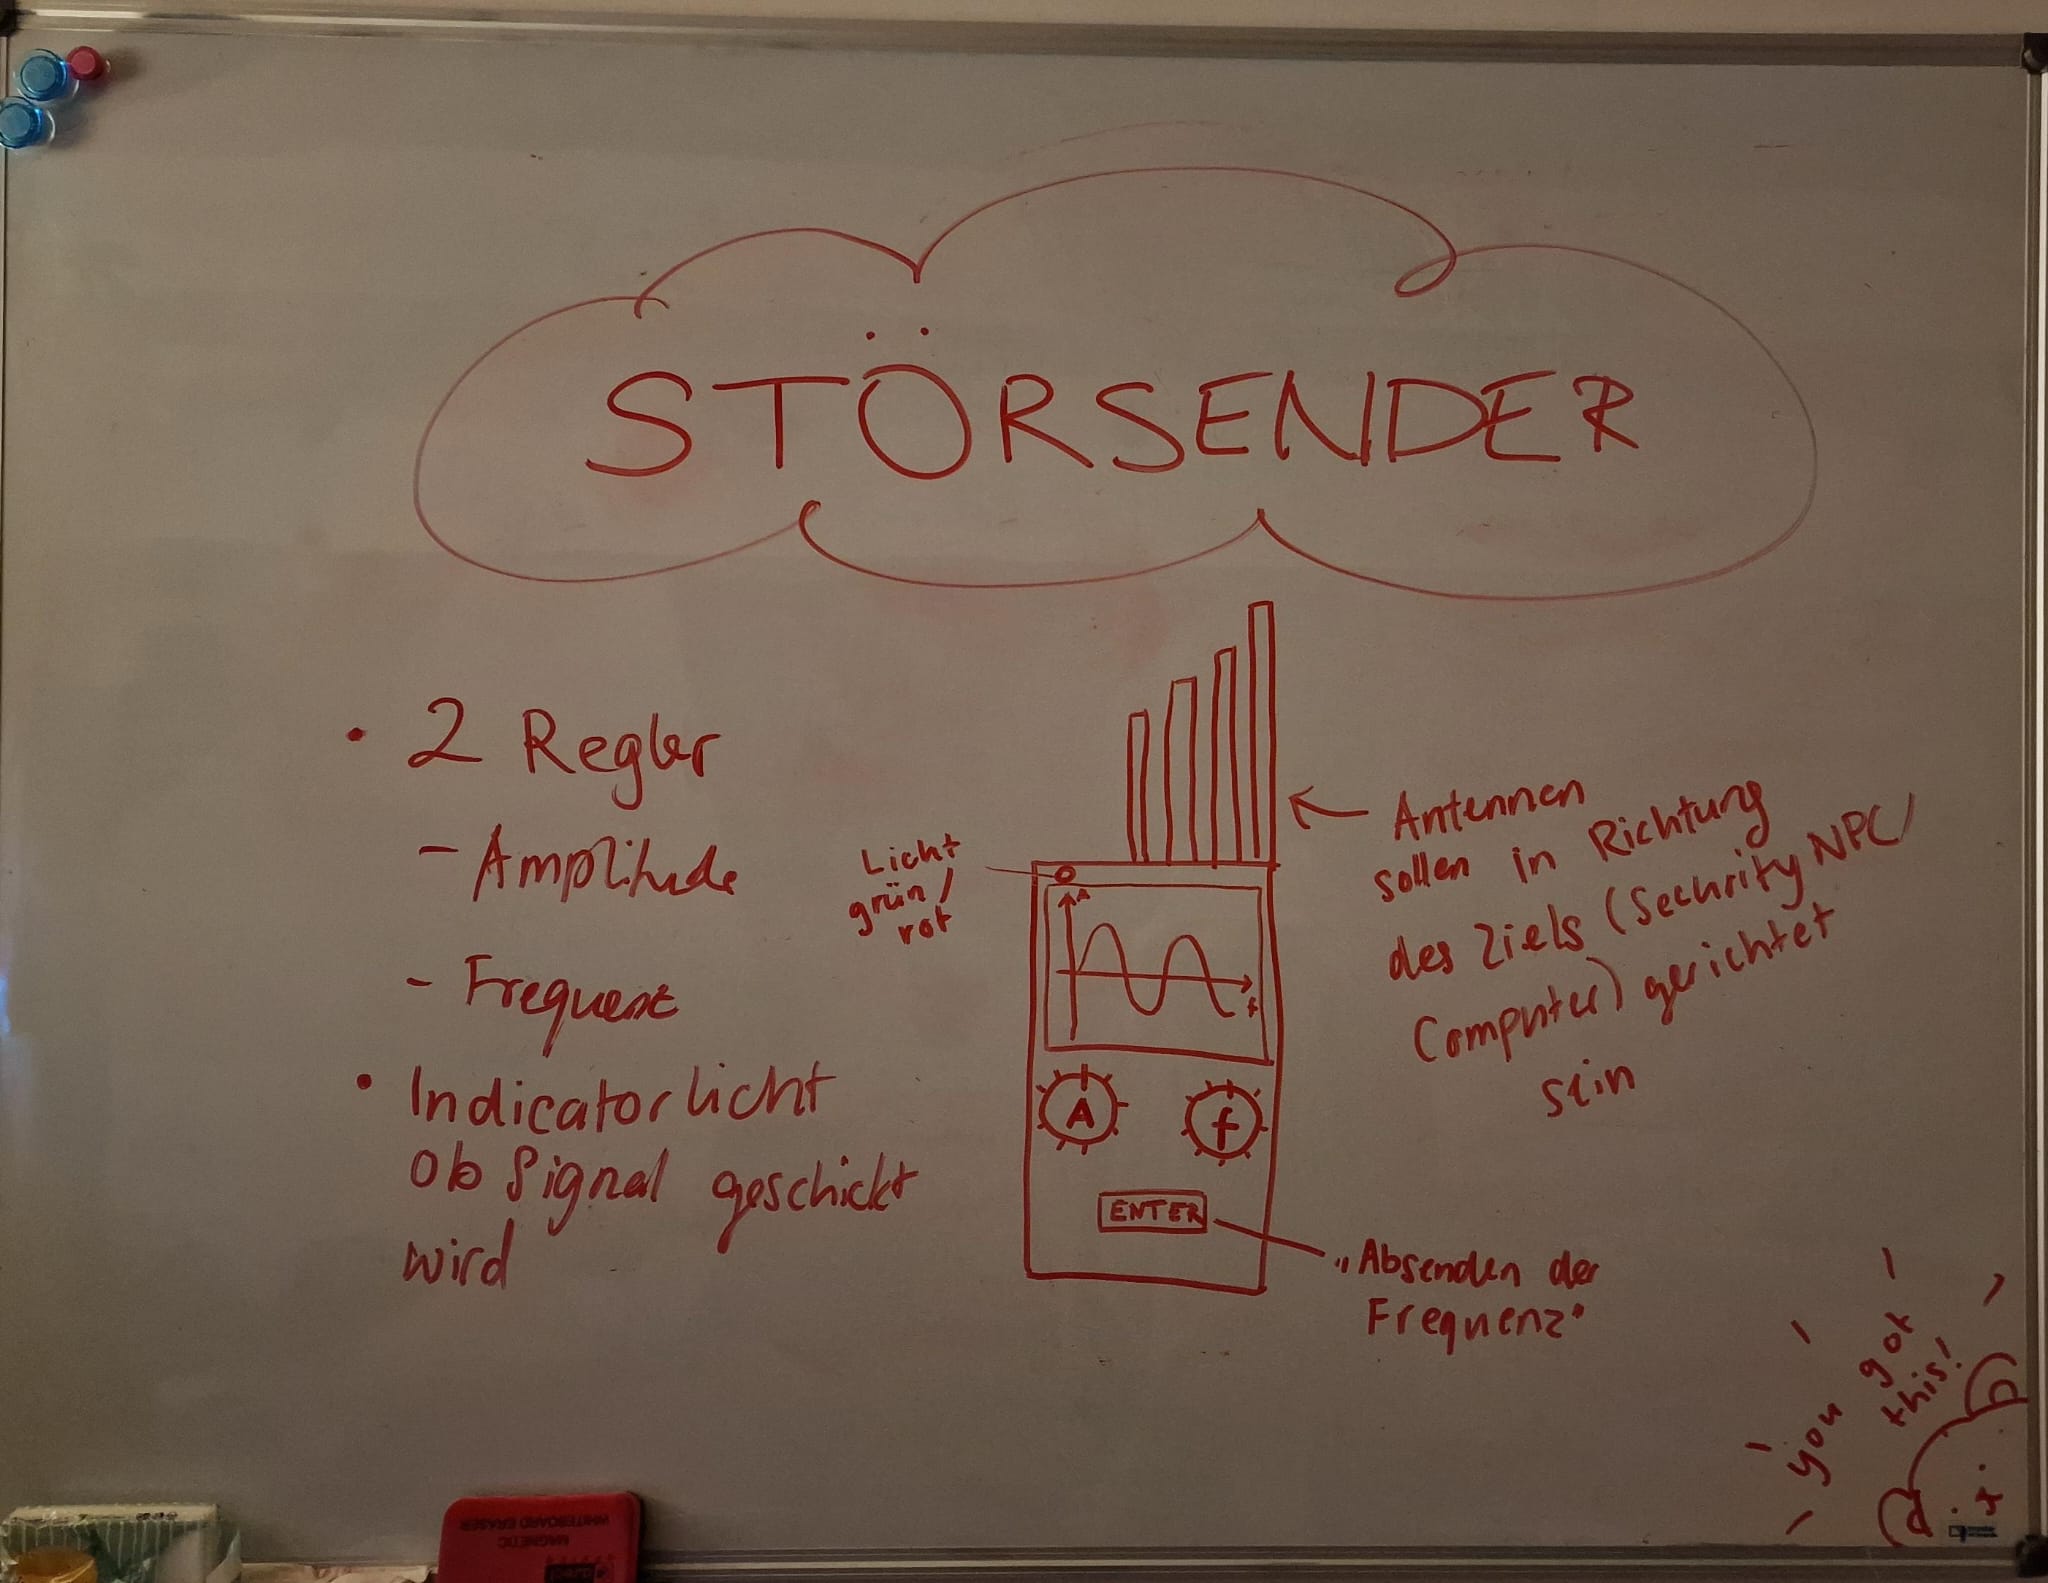 STÖRSENDER
• 2 Regler
- Amplitude
- Frequenz
• Indicatorlicht
ob Signal geschickt
wird
Licht
grün/
rot
A
f
A
f
ENTER
Antennen
sollen in Richtung
des Ziels (Security NPC/
Computer) gerichtet
sein
„Absenden der
Frequenz"
you got
this!
MAGNETIC
WHITEBOARD ERASER